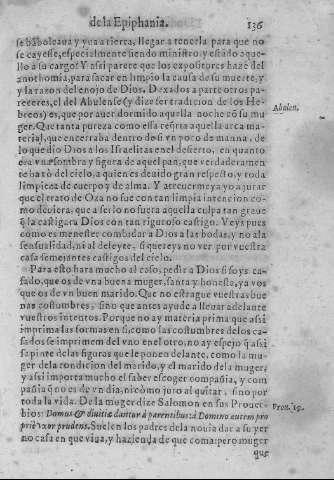 de la Epiphania. 136
se bāboleaua y yua a tierra, llegar a tenerla para que no
se cayesse, especialmente siendo ministro y estado aque-
llo a su cargo? Y assi parece que los expositores hazē del
anothomia, para sacar en limpio la causa de su muerte, y
y la razon del enojo de Dios. Dexados a parte otros pa-
receres, el del Abulense (y dize ser tradicion de los He-
breos) es, que por auer dormido aquella noche cō su mu-
Abulen.
ger. Que tanta pureza como essa respeta aquella arca ma-
terial, que encerraba dentro de si vn poco de manna, de
lo que dio Dios a los Israelitas en el desierto, en quanto
era vna sombra y figura de aquel pan, que verdaderamen
te baxò del cielo, a quien es deuido gran respecto, y toda
limpieza de cuerpo y de alma. Y atreuermeya yo a jurar
que el trato de Oza no fue con tan limpia intencion co-
mo deuiera, que a serlo no fuera aquella culpa tan graue
q̄ la castigara Dios con tan riguroso castigo. Veys pues
como es menester combidar a Dios a las bodas, y no a la
sensualidad, ni al deleyte, si quereys no ver por vuestra
casa semejantes castigos del cielo.
Para esto hara mucho al caso, pedir a Dios si soys ca-
sado, que os de vna buena muger, santa y honesta, ya vos
que os de vn buen marido. Que no estrague vuestras bue
nas costumbres, sino que antes ayude a lleuar adelante
vuestros intentos. Porque no ay materia prima que assi
imprima las formas en si, como las costumbres de los ca-
sados se imprimen del vno en el otro, no ay espejo q̄ assi
sa pinte de las figuras que le ponen delante, como la mu-
ger de la condicion del marido, y el marido de la muger,
y assi importa mucho el saber escoger compañia, y com
pañia q̄ no es de vn dia, ni como juro al quitar, sino por
por toda la vida. De la muger dize Salomon en sus Prouer
bios: Domus & diuitiæ dantur à parentibus: à Domino autem pro
Prou. 19.
priè vxor prudens. Suelen los padres de la nouia dar a su yer
no casa en que viua, y hazienda de que coma: pero muger
que